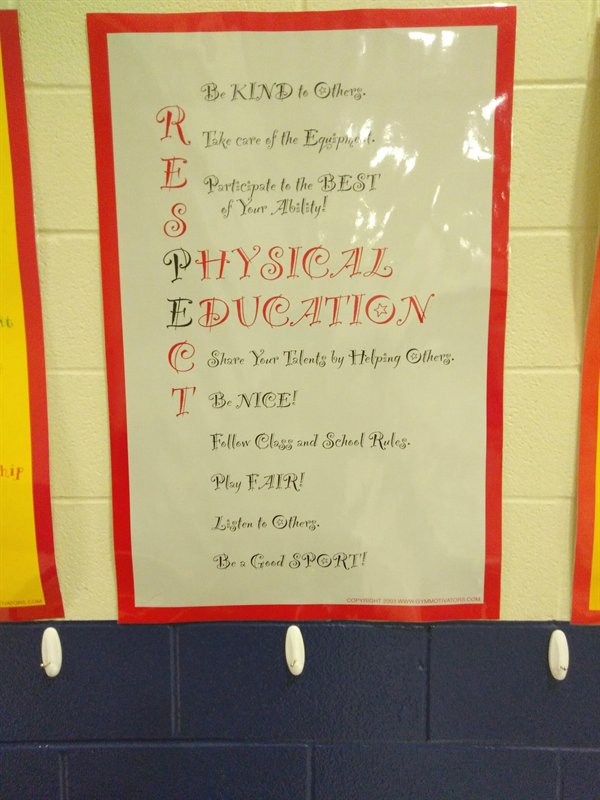 Be KIND to Others.
Take care of the Equipment.
Participate to the BEST
of Your Ability!
RESPECT
PHYSICAL
EDUCATION
Share Your Talents by Helping Others.
Be NICE!
Follow Class and School Rules.
Play FAIR!
Listen to Others.
Be a Good SPORT!
COPYRIGHT 2003 WWW.GYMMOTIVATORS.COM
hip
VATORS.COM